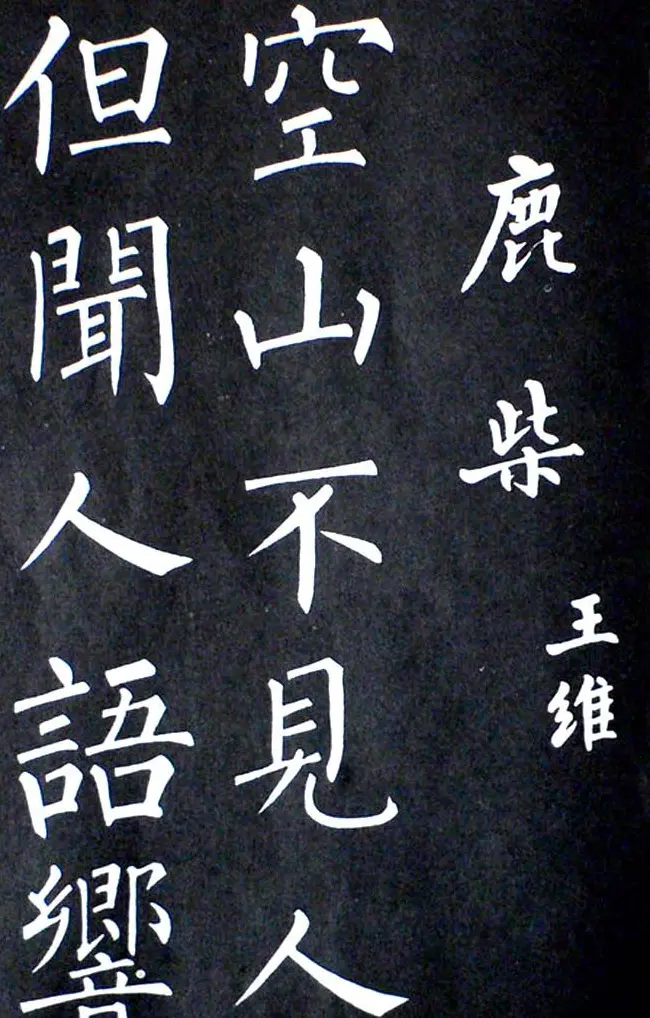 鹿柴
王维
空山不見人
但聞人語響